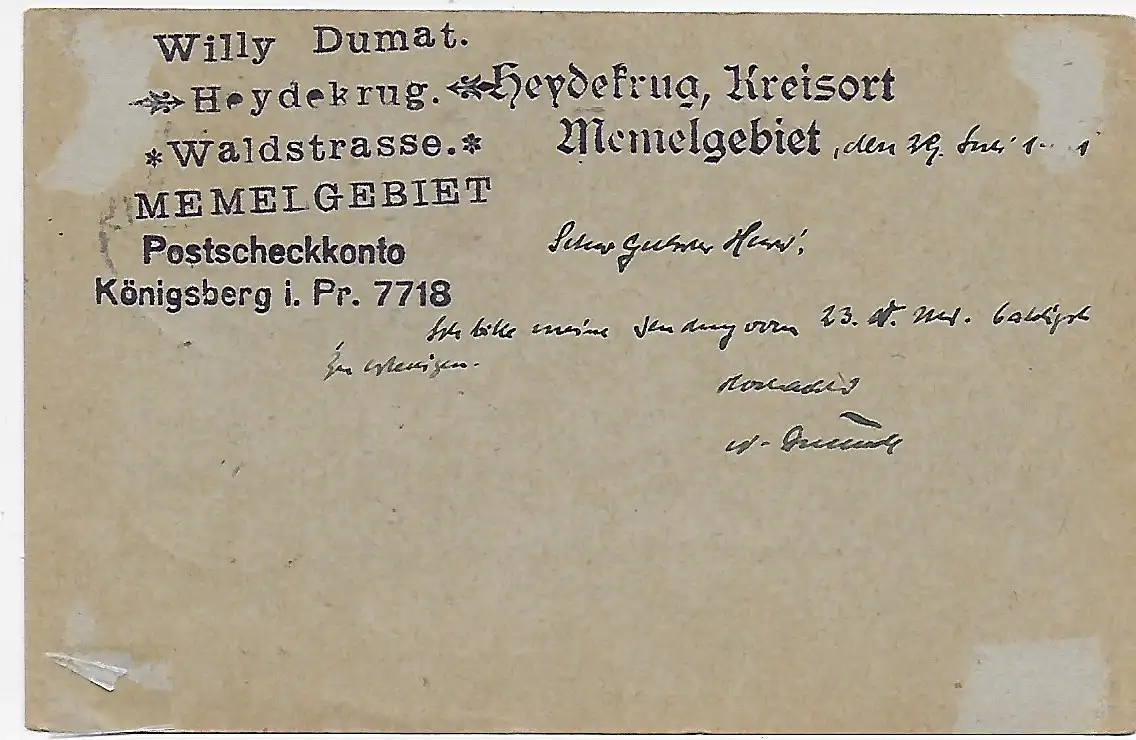 Willy Dumat.
Heydekrug.
*Waldstrasse.*
MEMELGEBIET
Postscheckkonto
Königsberg i. Pr. 7718
Heydekrug, Kreisort
Memelgebiet, den 29.
Sehr geehrter Herr!
Ich bitte meine Sendung vom 23. d. Mts. baldigst
zu
W. Dumat